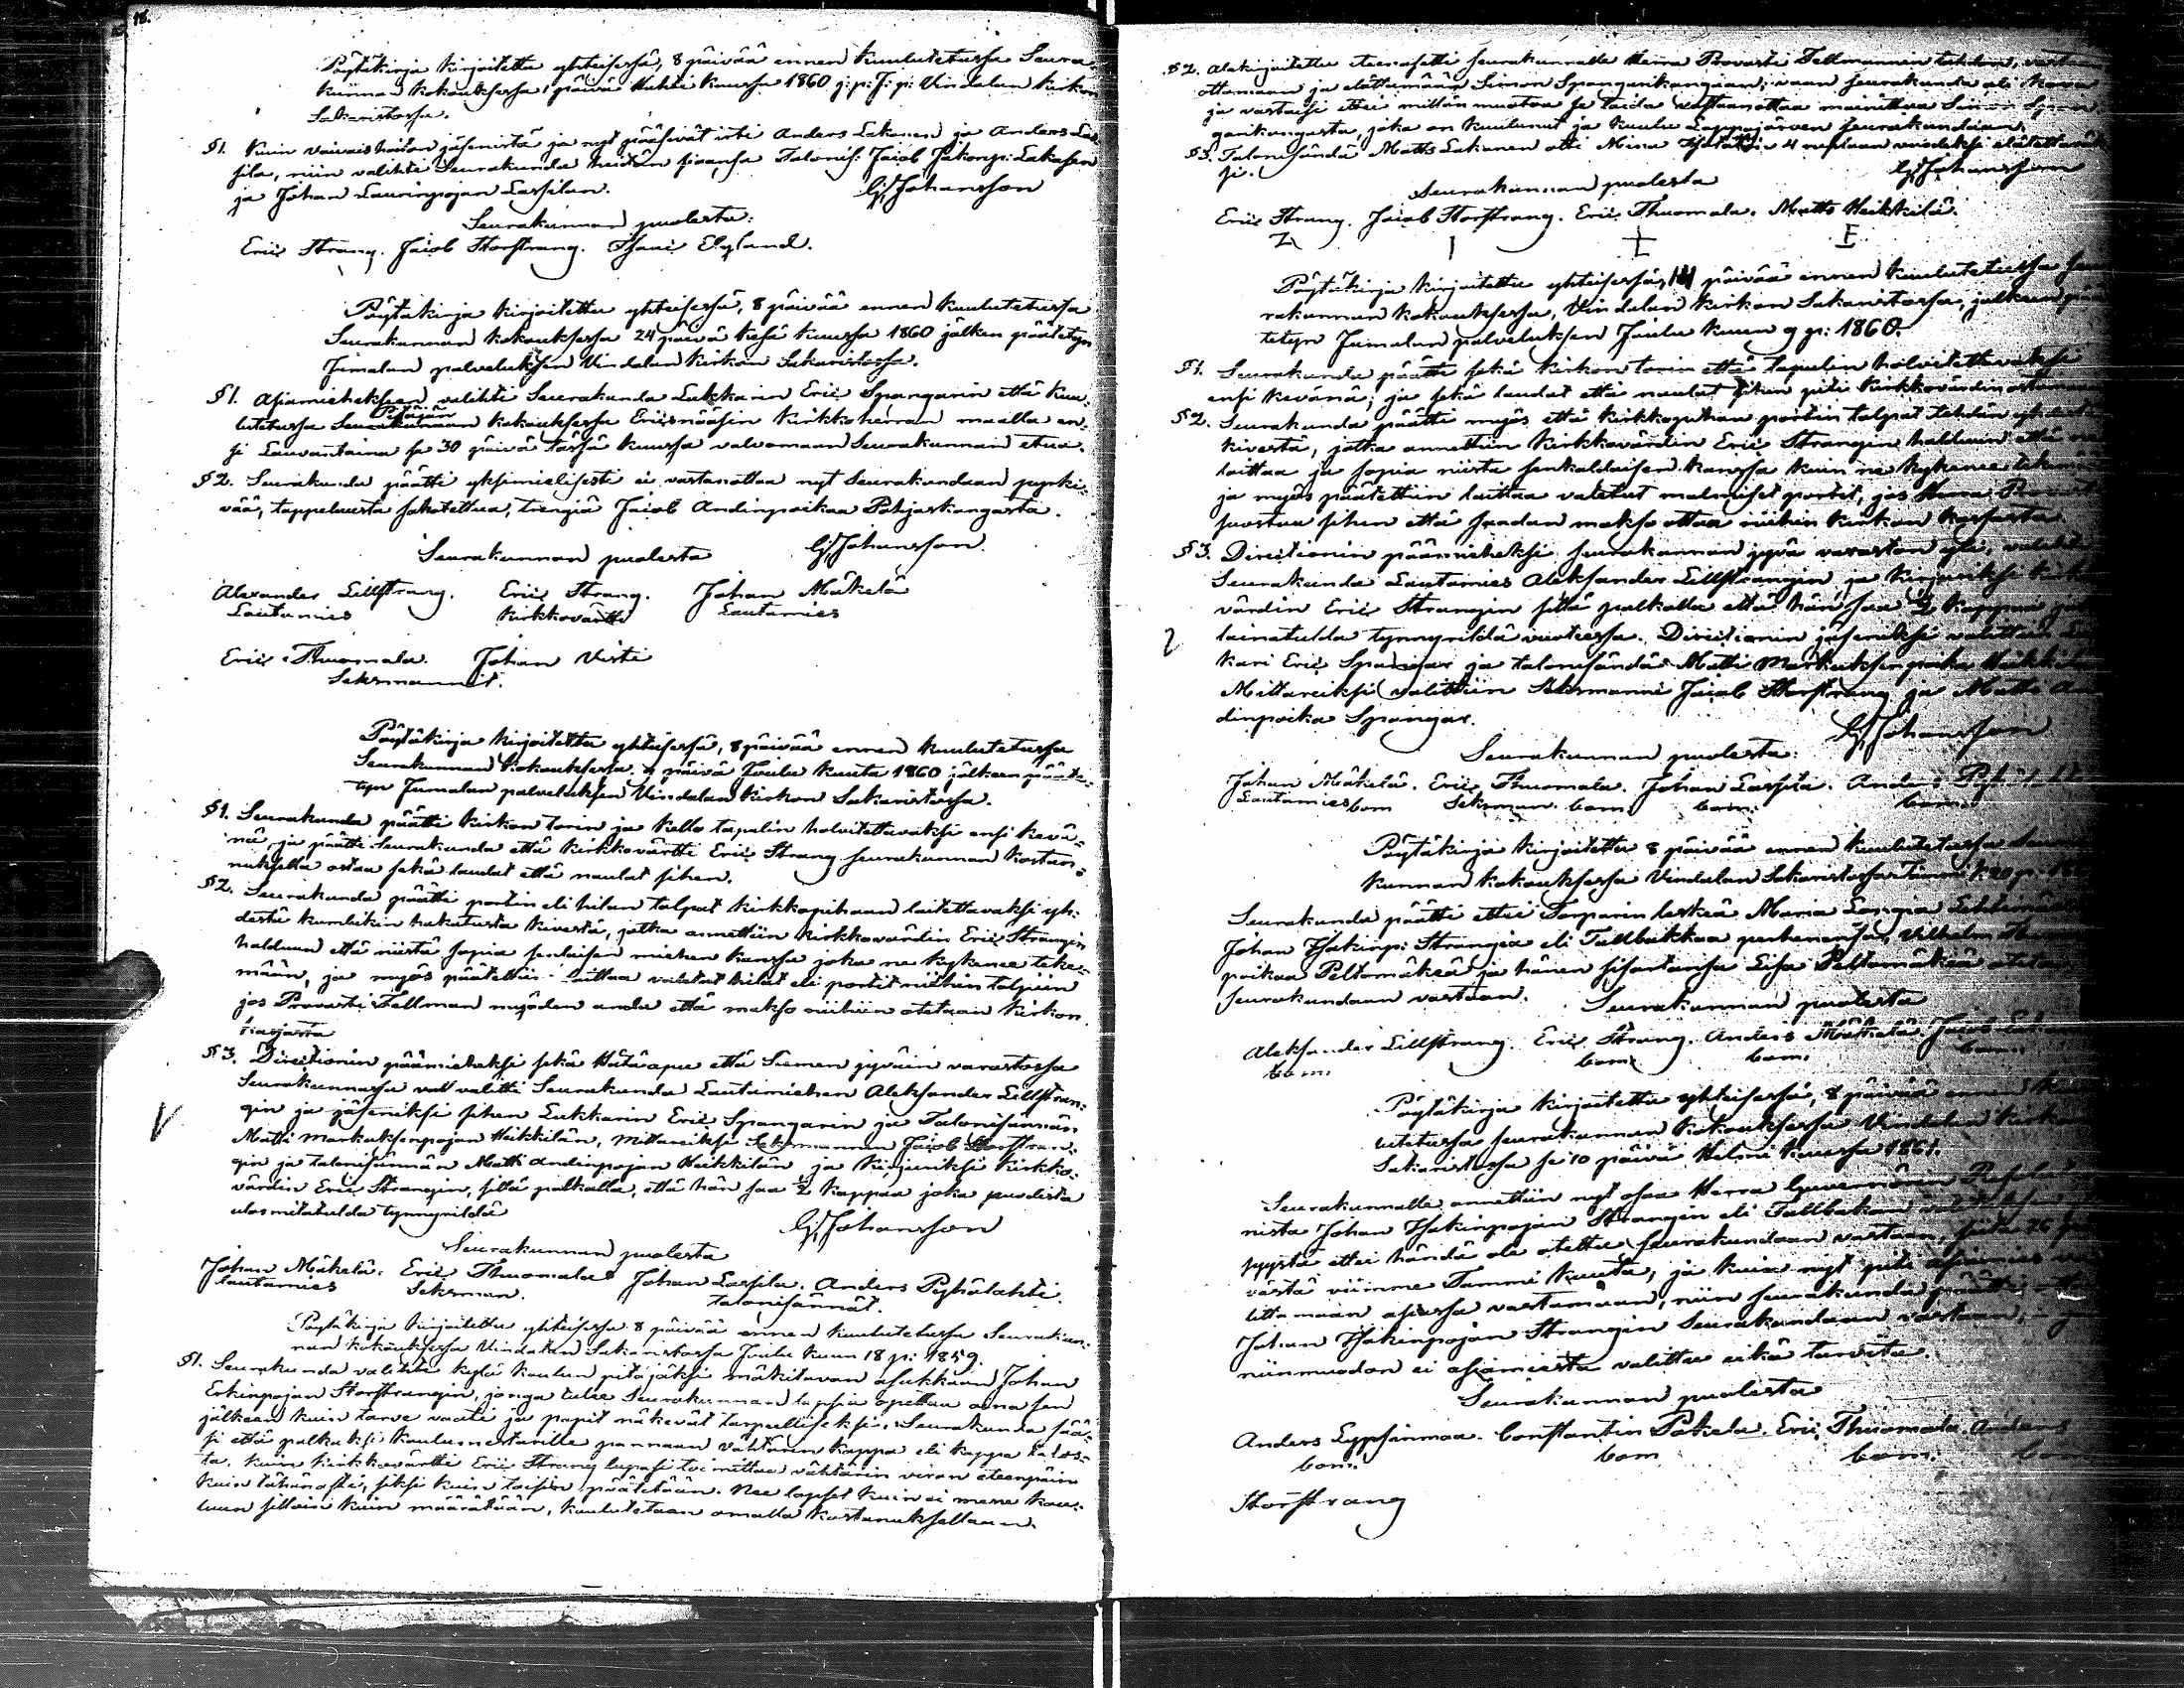 18.
Pöytäkirja kirjoitettu yhteisessä, 8 päivää ennen kuulutetussa Seura-
kunnan kokouksessa 1 päivä Huhti kuussa 1860 j: p: J: p: Vindalan kirkon
Sakaristossa.
§1. Kuin vaivaishoidon jäsenistä ja nyt pääsivät irti Anders Lakanen ja Anders Las-
sila, niin valihti Seurakunda heidän siaansa Talonis: Jacob Jakonp: Lakasen
ja Johan Lauringojan Lassilan.
GJohansson
Seurakunnan puolesta:
Eric Strang. Jacob Storstrang. Isaac Elgland.
Pöytäkirja kirjoitettu yhteisessä, 8 päivää ennen kuulutetussa
Seurakunnan kokouksessa 24 päivä kesä kuussa 1860 jälken päätetyn
Jumalan palveluksen Vindalan kirkon Sakaristossa.
§1. Asiamieheksen valihti Seurakunda Lukkarin Eric Spangarin että kuu-
lutetussa Pitäjän kokouksessa Kirkkoherran maalla en-
si Lauvantaina se 30 päivä tässä kuussa valvomaan Seurakunnan etua.
§2. Seurakunda päätti yksimielisesti ei vastanottaa nyt Seurakundaan pyrki-
vää, tappelusta sakotettua, trengiä Jacob Andinpoikaa Pohjaskangasta.
Seurakunnan puolesta GJohansson.
Alexander Lillstrang. Eric Strang. Johan Mäkelä
Lautamies Kirkkovärtti Lautamies
Eric Thuomala. Johan Visti
Seksmannit.
Pöytäkirja kirjoitettu yhteisessä, 8 päivää ennen kuulutetussa
Seurakunnan kokouksessa 9 päivä Joulu kuuta 1860 jälkeen pääte-
tyn Jumalan palveluksen Vindalan kirkon Sakaristossa.
§1. Seurakunda päätti kirkon tornin ja kello tapulin holvitettavaksi ensi kevä-
nä, ja päätti Seurakunda että kirkkovärtti Eric Strang seurakunnan kostan-
nuksella ostaa sekä laudat että naulat sihen.
§2. Seurakunda päätti portin eli hilan talpat kirkkopihaan laitettavaksi yh-
destä kumbikin hakatusta kivestä, jotka annettiin kirkkovärdin Eric Strangin
halduun että niistä sopia senlaisen miehen kansa joka ne kykenee teke-
mään, ja myös päätettiin laittaa valetut hilat eli portit niihin talpiin
jos Provasti Fellman myöden anda että makso niihiin otetaan kirkon
kassasta
§3. Directionin päämieheksi sekä Hätäapu että Siemen jyväin varastossa
Seurakunnassa valitti Seurakunda Lautamiehen Aleksander Lillstran-
gin ja jäseniksi sihen Lukkarin Eric Spangarin ja Talonisännän
Matti Markuksenpojan Heikkilän, Mittareiksi Seksmannen Jacob Storstran-
gin ja talonisännän Matti Andinpojan Heikkilän ja kirjuriksi kirkko-
värdin Eric Strangin, sillä palkalla, että hän saa ½ kappaa joka puolesta
ulosmitatulda tynnyrildä
GJohansson
Seurakunnan puolesta
Johan Mäkelä. Eric Thuomala Johan Lassila. Anders Pyhälahti.
lautamies Seksman. talonisännät.
Pöytäkirja kirjoitettu yhteisessä 8 päivää ennen kuulutetussa Seurakun-
nan kokouksessa Vindalan Sakaristossa Joulu kuun 18 p: 1859.
§1. Seurakunda valihti kylä koulun pitäjäksi mäkituvan asukkaan Johan
Erkinpojan Storstrangin, jonga tulee Seurakunnan lapsia opettaa aina sen
jälkeen kuin tarve vaatii ja papit näkevät tarpeelliseksi. Seurakunda sää-
si että palkaksi koulumestarille pannaan vähtärin kappa eli kappa talos-
ta, kuin kirkkovärtti Eric Strang lupasi toimittaa vähtärin viran eteenpäin
kuin tähänasti, siksi kuin toisin päätetään. Nee lapset kuin ei mene kou-
luun silloin kuin määrätään, kouletetaan omalla kostannuksellaan.
§2. Alakirjoitettu seurakunnalle Herra Provasti Fellmannin
ottamaan ja elättämään Simon Spangarikangaan; vaan seurakunda oli kova
ja vastaisi ettei millän muotoa se taida vastaanottaa mainittua Simon Span-
garikangasta, joka on kuulunut ja kuulu Lappajärven seurakundaan.
§3. Talonisändä Matts Lakanen otti 4 ruplaan vuodeksi elätettävä-
si.
GJohansson
Seurakunnan puolesta
Eric Strang. Jacob Storstrang. Eric Thuomala. Matts Heikkilä.
Pöytäkirja kirjoitettu yhteisessä, 14 päivää ennen kuulutetussa Seu-
rakunnan kokouksessa, Vindalan kirkon Sakaristossa, jälkeen pää-
tetyn Jumalan palveluksen Joulu kuun 9 p: 1860.
§1. Seurakunda päätti sekä kirkon tornin että tapulin holvitettavaksi
ensi kevänä; ja sekä laudat että naulat sihen piti kirkkovärdin
§2. Seurakunda päätti myös että kirkkopihan portin talpat tehdän
kivestä, jotka annettiin kirkkovärdin Eric Strangin halduun että
laittaa ja sopia niista senkaldaisen kanssa kuin ne kykenee
ja myös päätettiin laittaa valetut malmiset portit, jos Herra Provasti
suostuu sihen että saadan makso ottaa niihin kirkon kassasta.
§3. Directionin päämieheksi seurakunnan jyvä varastan yli, valihti
Seurakunda Lautamies Aleksander Lillstrangin, ja kirjuriksi kirkko-
värdin Eric Strangin sillä palkalla että hän saa ½ kappaa
lainatulda tynnyrildä vuotessa. Directionin jäseniksi valittiin Luk-
kari Eric Spangar ja talonisändä Matti Markuksen poika Heikkilä
Mittareiksi valittiin Seksmanni Jacob Storstrang ja Matts An-
dinpoika Spangar.
GJohansson
Seurakunnan puolesta:
Johan Mäkelä. Eric Thuomala. Johan Lassila. Anders
Lautamies bom Seksman. bom bom. bom.
Pöytäkirja kirjoitettu 8 päivää ennen kuulutetussa Seura-
kunnan kokouksessa Vindalan Sakaristossa Tammi k: 20 p:
Seurakunda päätti ettei Torparin leskeä Maria
Johan Isakinp: Strangia eli Tallbakkaa perhenensä, Vilhelm
poikaa Peltomäkeä ja hänen sisartansa Lisa Peltomäkeä
seurakundaan vastaan.
Seurakunnan puolesta
Aleksander Lillstrang. Eric Strang. Anders Jacob
bom. bom. bom. bom.
Pöytäkirja kirjoitettu yhteisessä, 8 päivää ennen kuu-
lutetussa seurakunnan kokouksessa Vindalan kirkon
Sakaristossa se 10 päivä Helmi kuussa 1861.
Seurakunnalle annettiin nyt osaa Herra Guvernören
nista Johan Isakinpojan Strangin eli Tallbakan
syystä ettei händä ole otettu seurakundaan vastaan, siitä 26
västä viimme Tammi kuuta, ja kuin nyt piti asiamies
littamaan asiassa vastamaan, niin seurakunda päätti
Johan Isakinpojan Strangin Seurakundaan vastaan,
niinmuodon ei asiamiestä valittu eikä tarvita.
Seurakunnan puolesta
Anders Lypsinmaa. Constantin Pokela. Eric Thuomala. Anders
bom. bom bom. bom
Storstrang